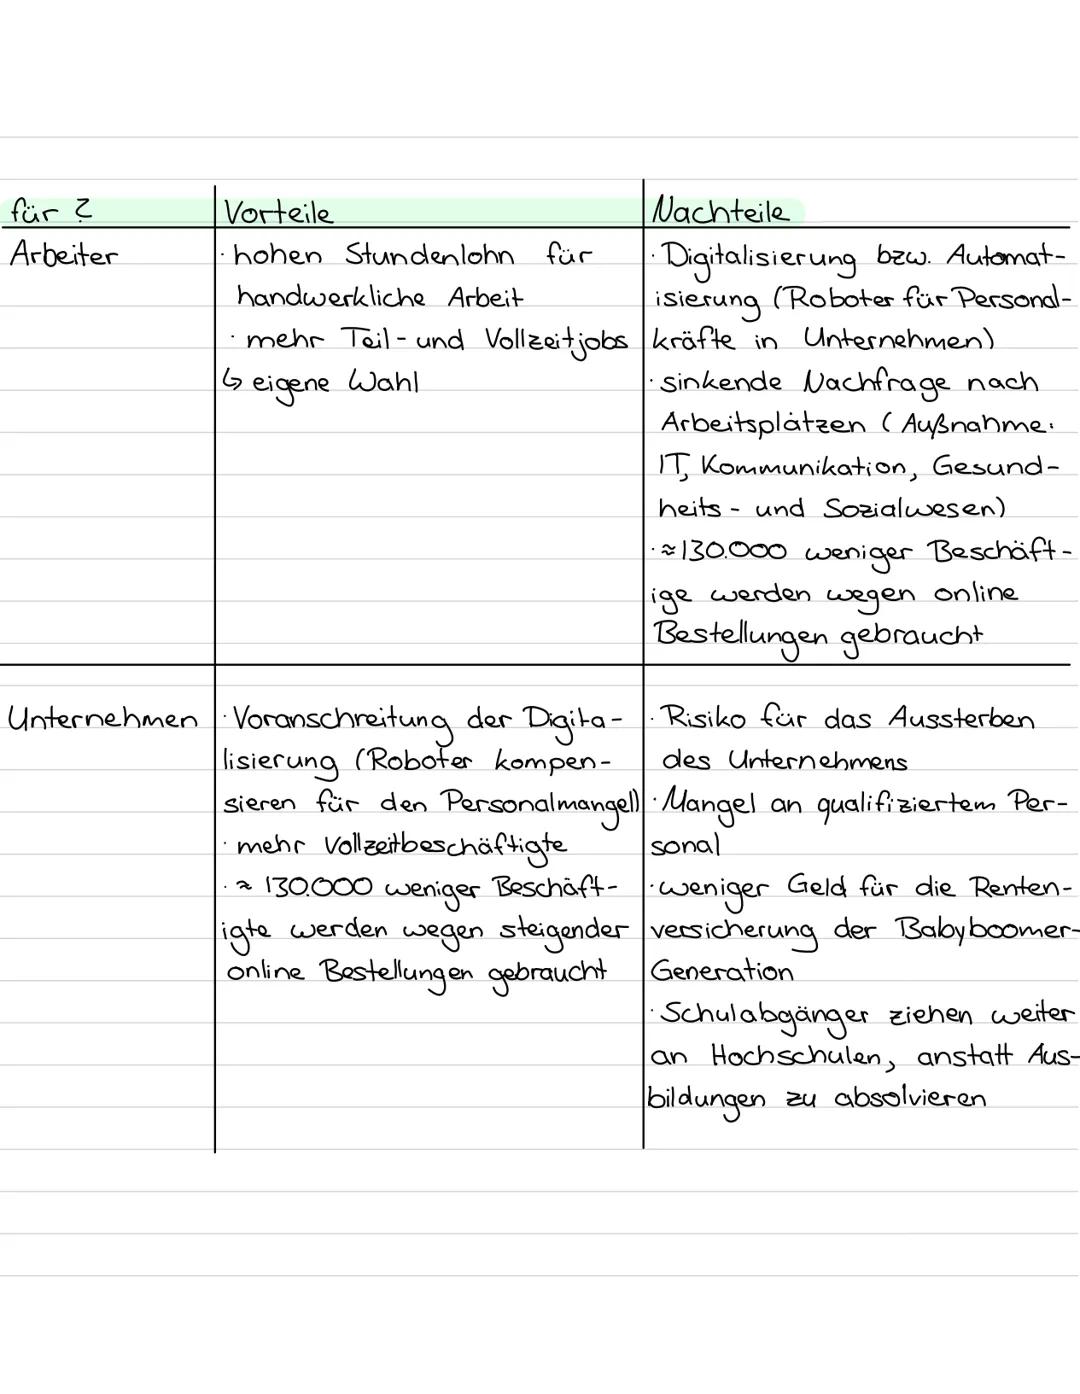 für ?
Vorteile
Nachteile
Arbeiter
· hohen Stundenlohn für
handwerkliche Arbeit
· mehr Teil- und Vollzeitjobs
↳ eigene Wahl
· Digitalisierung bzw. Automat-
isierung (Roboter für Personal-
kräfte in Unternehmen)
· sinkende Nachfrage nach
Arbeitsplätzen (Außnahme:
IT, Kommunikation, Gesund-
heits- und Sozialwesen)
· ≈130.000 weniger Beschäft-
ige werden wegen online
Bestellungen gebraucht
Unternehmen
· Voranschreitung der Digita-
lisierung (Roboter kompen-
sieren für den Personalmangel)
· mehr Vollzeitbeschäftigte
· ≈ 130.000 weniger Beschäft-
igte werden wegen steigender
online Bestellungen gebraucht
· Risiko für das Aussterben
des Unternehmens
· Mangel an qualifiziertem Per-
sonal
· weniger Geld für die Renten-
versicherung der Babyboomer-
Generation
· Schulabgänger ziehen weiter
an Hochschulen, anstatt Aus-
bildungen zu absolvieren